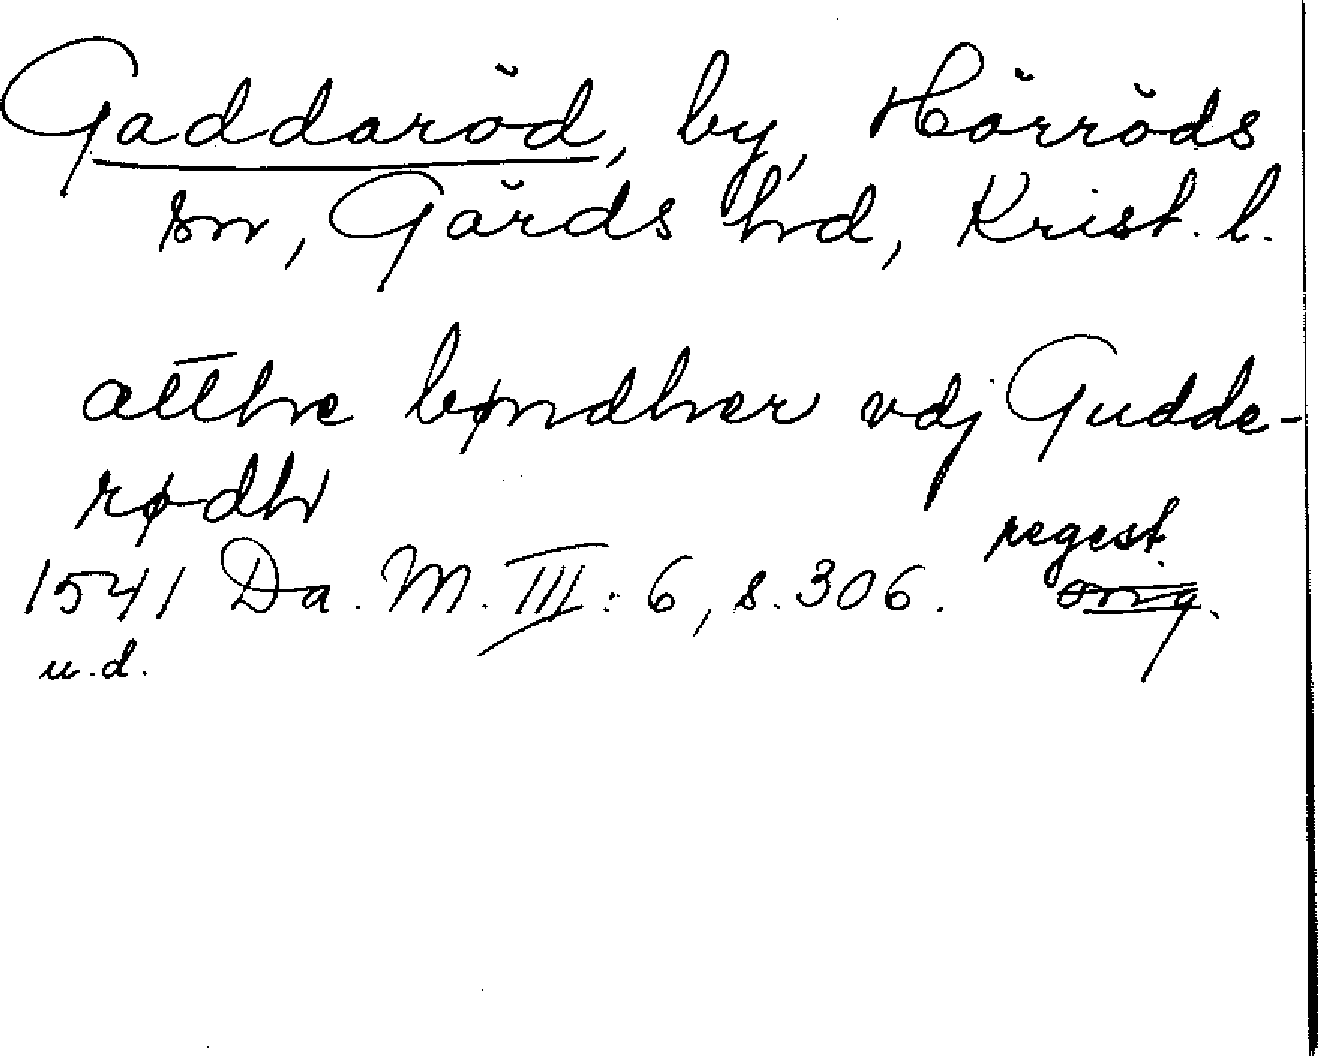 Gaddaröd, by, Hörröds
sn, Gärds hd, Krist. l.
atthe bøndher vdj Gudde-
rødh
regest.
1541 Da. M. III: 6, s. 306. orig.
u.d.